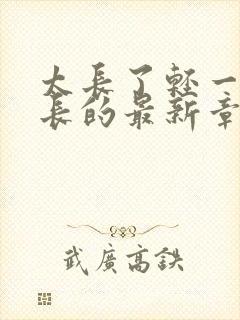 太長了輕一
長的最新章
武廣高鉄